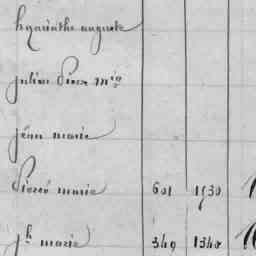 hyacinthe auguste
julien Pierre mie
jean marie
Pierre marie 601 1930
jh marie 349 1340